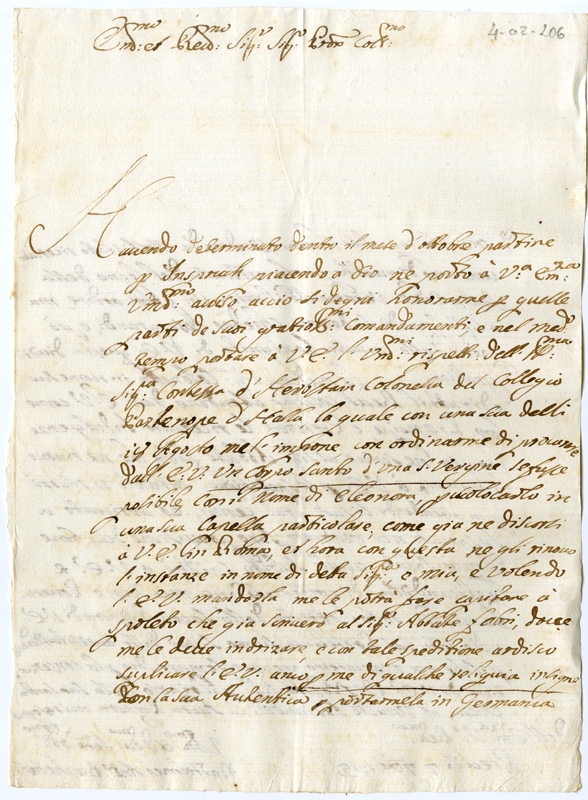 4-02-206
Em:mo et Reud:mo Sig:r Sig:r Prõn Coll:mo
Hauendo determinato dentro il mese d'ottobre partire
p Inspruch piacendo à dio ne porto à V:a Em:za
auiso acciò si degni honorarme p quelle
parti de suoi gratios:mi Comandamenti e nel med:o
tempo portare à V.E. l'Vm:mi rispetti dell'Ill:ma
Sig:ra Contessa d' Colonella del Collegio
Partenope d'Halla, la quale con una sua delli
19 Agosto me l'impone con ordinarme di procurare
dall'E.V. Vn Corpo Santo d'una S. Vergine se fusse
posibile, con il Nome di Eleonora, p collocarlo in
una sua Capella particolare, come già ne discorsi
à V.E. in Roma, et hora con questa ne gli rinouo
l'instanze in nome di detta Sig:ra e mia, e Volendo
l'E.V. mandarla me le potrà fare capitare à
spoleto che già scriuerò al Sig:r Abbate fabri, doue
me le deue indrizare, e con tale speditione ardisco
suplicare l'E.V. anco p me di qualche reliquia insigne
con la sua Autentica p portarmela in Germania